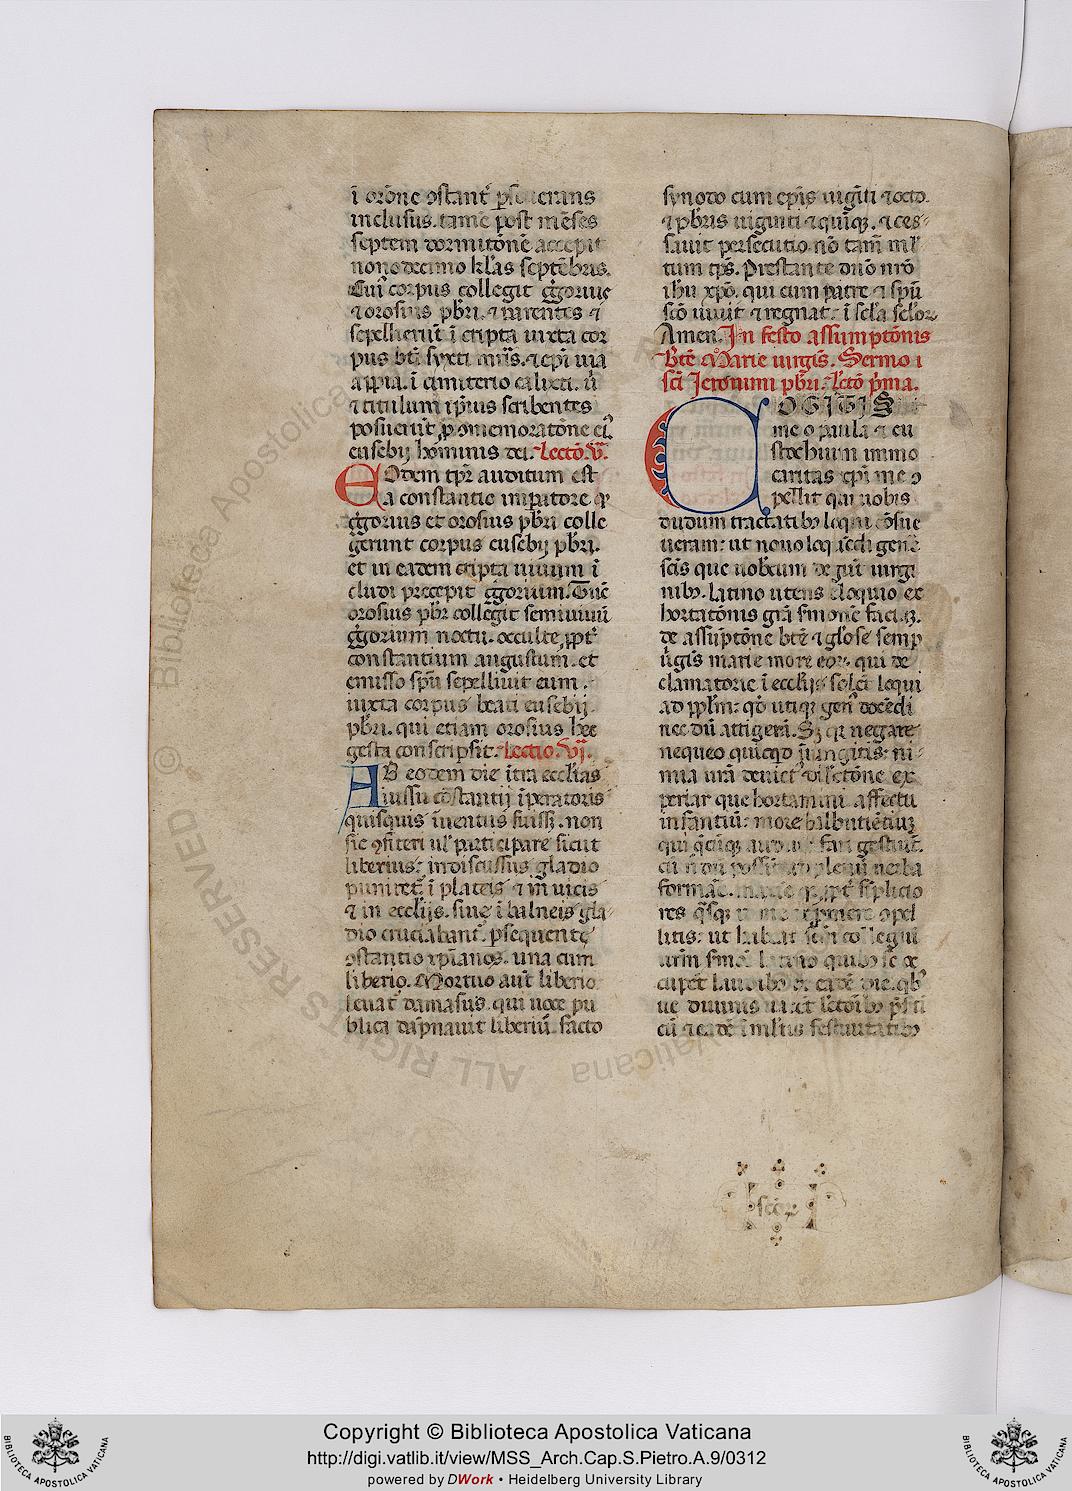 ī orōne ɔstant᷑ ꝑseuerans
inclusus. tamē post mēses
septem dormitōnē accepit
nonodecimo kl'as septēbris.
Cui᷑ corpus collegit g̃gorius
⁊ orosius pb̄ri. ⁊ parentes ⁊
sepelierūt ī cripta iuxta cor
pus bt̄i syxti mr̄is. ⁊ ep̄i uia
appia. ī cimiterio calixti. ū
⁊ titulum ip̄ius scribentes
posuerūt ꝓ ɔmemoratōne ei᷑
eusebij hominis dei. Lectō. v.ᵃ
Eodem tp̄r auditum est
a constantio imꝑatore ꝙ
g̃gorius et orosius pb̄ri colle
gerunt corpus eusebij pb̄ri.
et in eadem cripta uiuum ī
cludi precepit g̃gorium. Tūc
orosius pb̄r collegit semiuiuū
g̃gorium noctu. occulte ꝓpt᷑
constantium augustum. et
emisso sp̄u sepelliuit eum.
iuxta corpus beati eusebij
pb̄ri. qui etiam orosius hec
gesta conscripsit. Lectio. Vj.ᵃ
AB eodem die ītra eccl'ias
iussu cōstantij īperatoris
quisquis inuentus fuiss;. non
sic ɔfiteri ul' participare sicut
liberius: indiscussus gladio
puniret᷑. ī plateis ⁊ in uicis
⁊ in eccl'ijs. siue ī balneis gla-
dio cruciabant᷑. ꝑsequente
ɔstantio xp̄ianos. una cum
liberio. Mortuo aut̄ liberio
leuat᷑ damasus. qui uoce pu
blica dāpnauit liberiū. facto
synodo cum ep̄is uigīti ⁊ octo.
⁊ pb̄ris uiginti ⁊ quīqꝫ. ⁊ ces-
sauit persecutio. nō tam̄ ml'
tum tp̄s. Prestante dn̄o nr̄o
ih̄u xp̄o. qui cum patre ⁊ sp̄u
sc̄o uiuit ⁊ regnat. ī scl'a scl'oꝝ
Amen. In festo assumptōnis
bt̄e Marie uirgīs. Sermo i
sc̄i Jeronimi pb̄ri. Lectō p̄ma.
COGITIS
me o paula ⁊ eu
stochium immo
caritas xp̄i me ɔ
pellit qui uobis
dudum tractatibꝫ loqui ɔ̄sue
ueram: ut nouo loquēdi genē
scīs que uob̄cum degūt uirgi
nibꝫ. latino utens eloquio ex
hortatōnis gr̄a smonē faciaꝫ.
de assūptōne bt̄e ⁊ gl'ose semꝑ
ūgīs marie more eoꝝ. qui de
clamatorie ī eccl'ijs solēt loqui
ad ppl'm: qd̄ utiqꝫ gen᷑ docēdi
nec dū attigerā. Sꝫ qr negare
nequeo quicqd̄ iniungitis: ni-
mia ur̄a deuict᷑ dilectōne ex
periar que hortamini affectu
infantiū: more balbutiētiuꝫ
qui q̄cūqꝫ audīt: fari gestiūt.
cū nōdū possīt ad plenū uerba
formare. maxīe qꝫ ꝓpt᷑ sīplicio
res
litis: ut habeat sc̄m collegiū
ur̄m
ue diuinis
cū ⁊ eadē ī ml'tis festiuitatibꝫ
sc̄oꝝ
Copyright © Biblioteca Apostolica Vaticana
http://digi.vatlib.it/view/MSS_Arch.Cap.S.Pietro.A.9/0312
powered by DWork • Heidelberg University Library
BIBLIOTECA APOSTOLICA VATICANA
BIBLIOTECA APOSTOLICA VATICANA